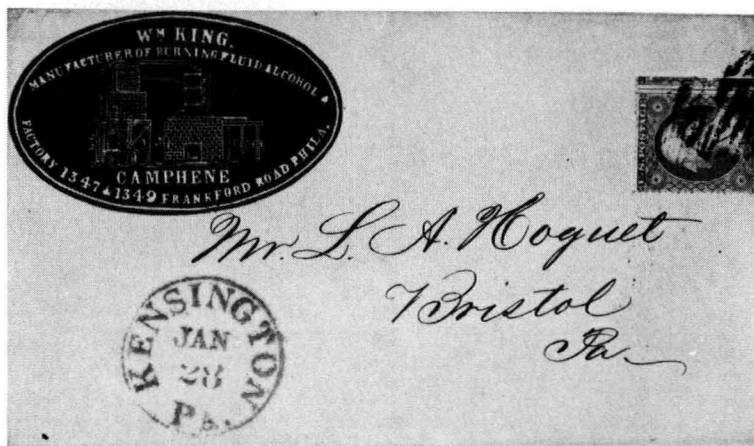 WM KING.
MANUFACTURER OF BURNING FLUID ALCOHOL &
CAMPHENE
FACTORY 1347 & 1349 FRANKFORD ROAD PHILA.
U.S. POSTAGE
Mr. L. A. Hoguet
Bristol
Pa
KENSINGTON
JAN
28
PA.